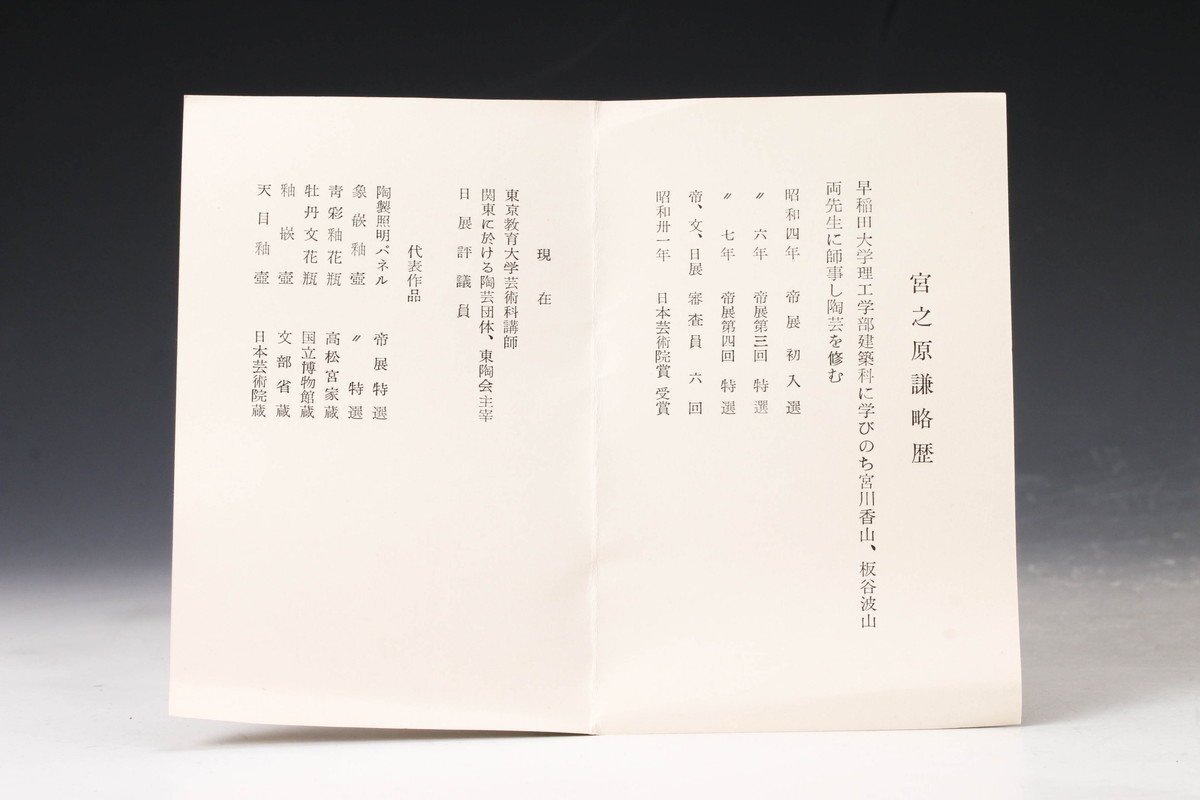 宮之原謙略歴
早稲田大学理工学部建築科に学びのち宮川香山、板谷波山
両先生に師事し陶芸を修む
昭和四年 帝展初入選
〃六年 帝展第三回特選
〃七年 帝展第四回特選
帝、文、日展 審査員六回
昭和卅一年 日本芸術院賞受賞
現在
東京教育大学芸術科講師
関東に於ける陶芸団体、東陶会主宰
日展評議員
代表作品
陶製照明パネル 帝展特選
象嵌釉壺 〃特選
青彩釉花瓶 高松宮家蔵
牡丹文花瓶 国立博物館蔵
釉嵌壺 文部省蔵
天目釉壺 日本芸術院蔵